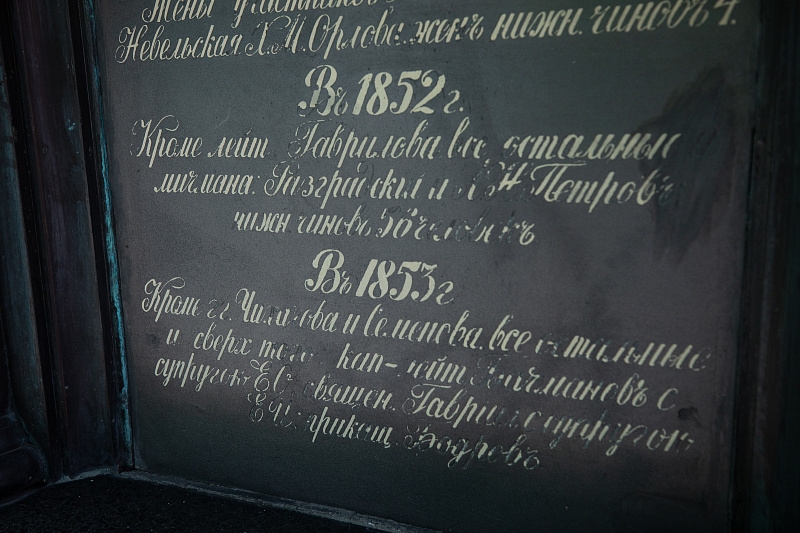 жены участниковъ
Невельская Х.М.Орлова.женъ нижн.чиновъ 4.
Въ 1852 г.
Кроме лейт Гаврилова все остальные
мичмана: Разградский и Петровъ
нижн.чиновъ 50 человекъ
Въ 1853 г
Кроме г.г. Чихачова и Семенова все остальные
и сверх того кап-лейт Бачмановъ с
супругою Е священ. Гавриил с супругою
Е прикащ. Бодровъ